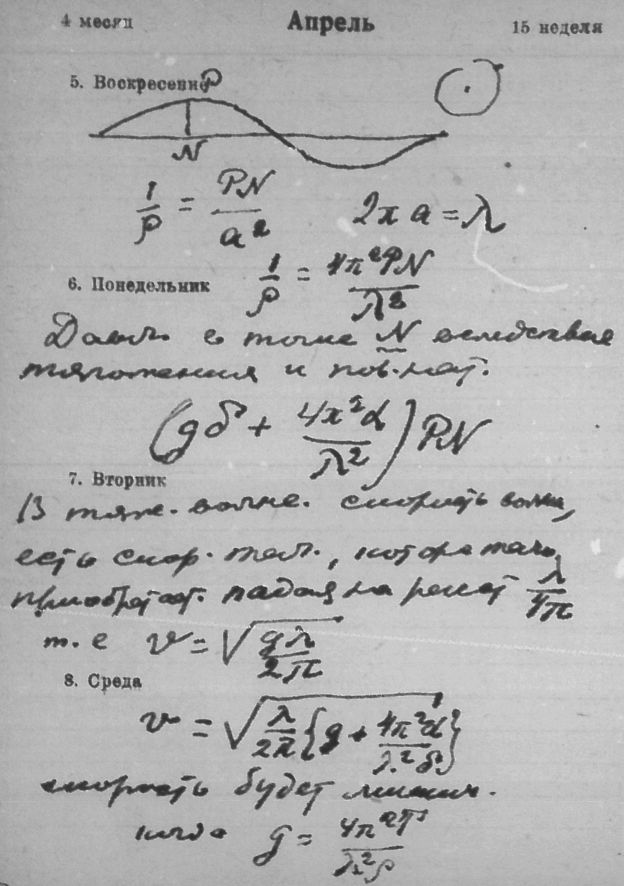 4 месяц Апрель 15 неделя
5. Воскресение
P
N
1/ρ = PN/a² 2π a = λ
6. Понедельник 1/ρ = 4π²PN/λ²
Давл. в точке N вследствие
тяготения и пов. нат.
(gδ + 4π²α/λ²) PN
7. Вторник
В тяж. волне. скорость волны,
есть скор. тел.,
приобретает. падая на λ/4π
т. е v = √(gλ/2π)
8. Среда
v = √(λ/2π {g + 4π²α/λ²δ})
скорость будет миним.
когда g = 4π²T/λ²ρ